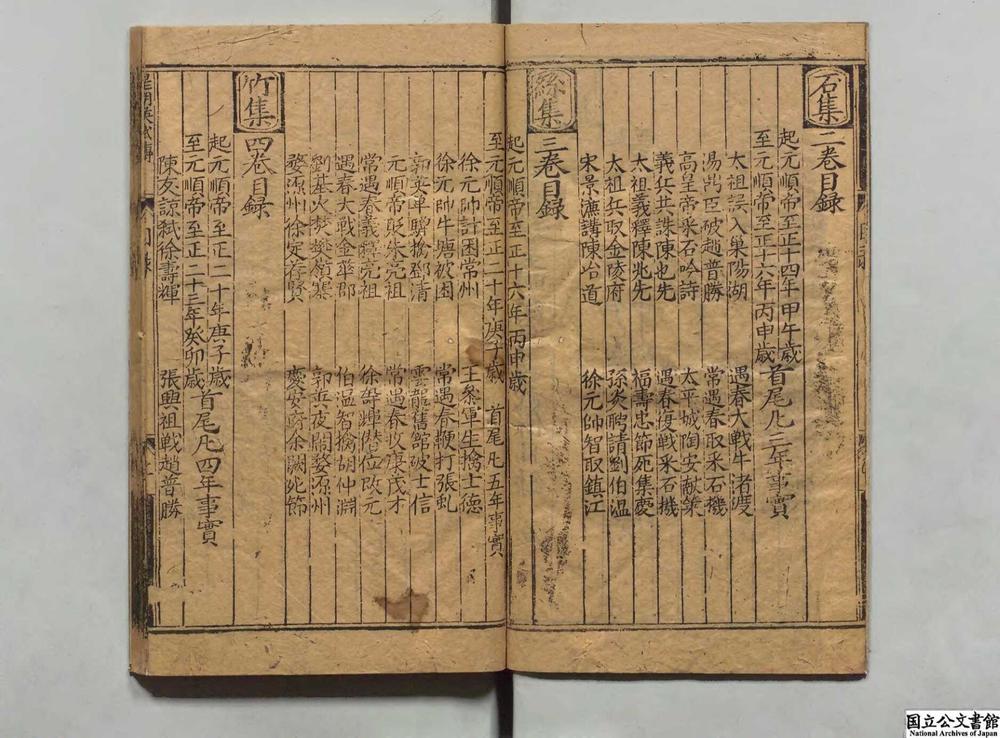 石集
二卷目録
起元順帝至正十四年甲午歲
至元順帝至正十六年丙申歲
首尾凡三年事實
太祖誤入巢陽湖 遇春大戰牛渚渡
湯鼎臣破趙普勝 常遇春取采石機
高呈帝采石吟詩 太平城陶安献策
義兵共誅陳也先 遇春復戰采石機
太祖義釋陳兆先 福壽忠節死集慶
太祖兵取金陵府 孫炎聘請劉伯温
宋景濂講陳治道 徐元帥智取鎮江
絲集
三卷目録
起元順帝至正十六年丙申歲
至元順帝至正二十年庚子歲
首尾凡五年事實
徐元帥計困常州 王參軍生擒士德
徐元帥牛塘被困 常遇春鞭打張虬
郭英單騎擒鄧清 雲龍舊館破士信
元順帝貶朱亮祖 常遇春收康茂才
常遇春義釋亮祖 徐壽輝僣位改元
遇春大戰金華郡 伯温智擒胡仲淵
劉基火焚嶺寨 郭英夜閙婺源州
婺源州徐定存賢 慶安府余闕死節
竹集
四卷目録
起元順帝至正二十年庚子歲
至元順帝至正二十三年癸卯歲
首尾凡四年事實
陳友諒弑徐壽輝 張興祖戰趙普勝
皇明英武傳
目録
国立公文書館
National Archives of Japan